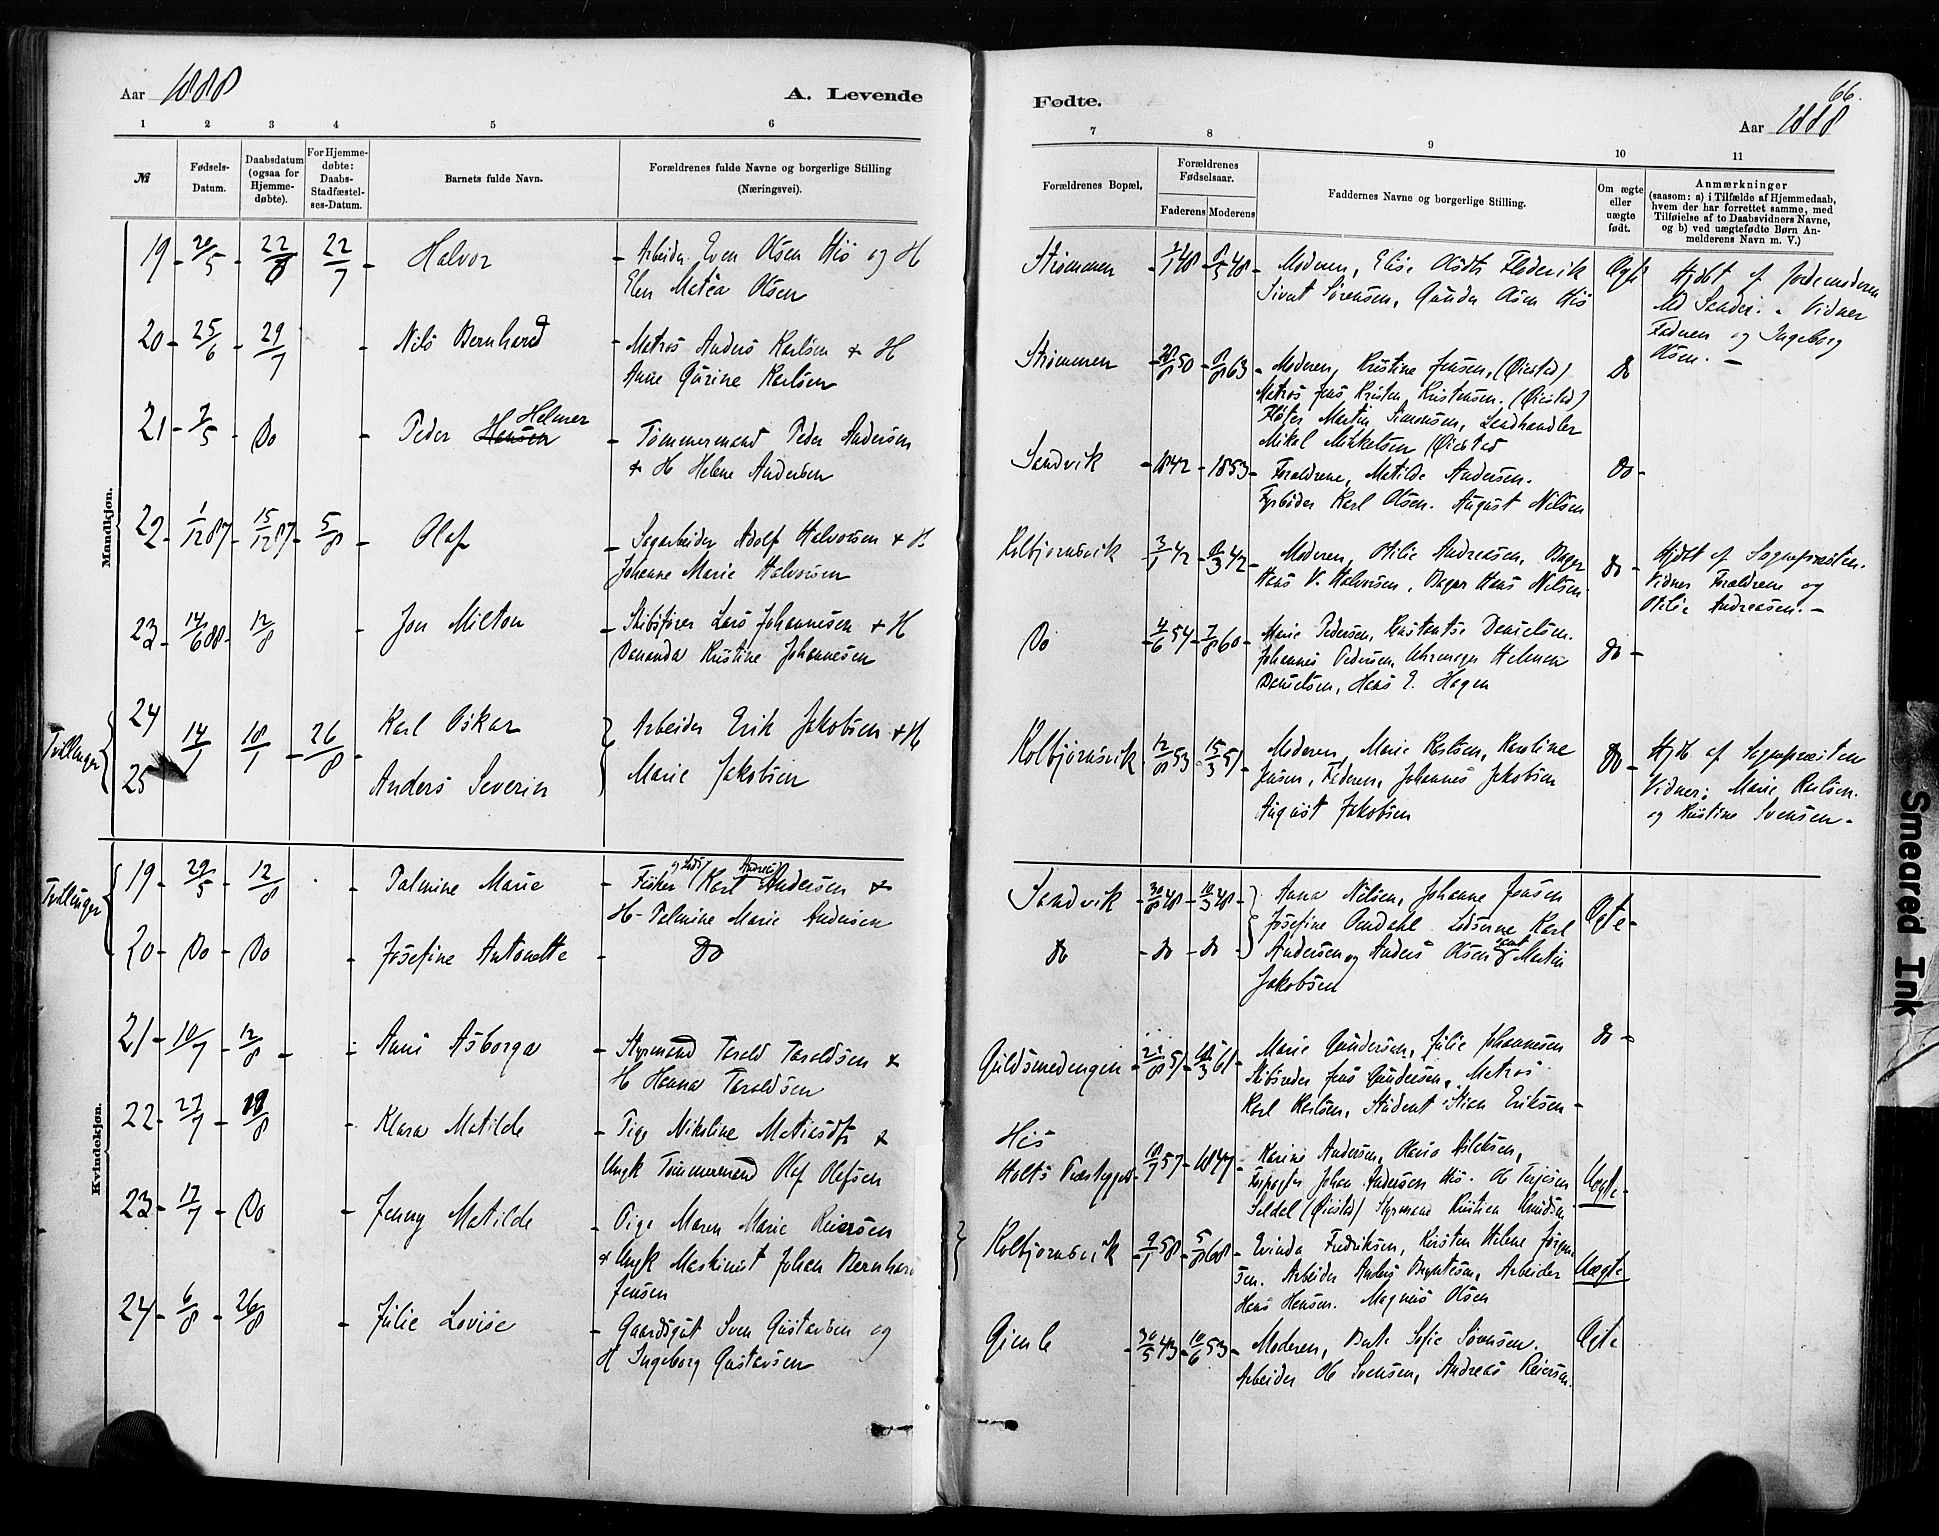 Aar 1888
A. Levende
1 2 3 4 5 6
№
Fødsels-
Datum.
Daabsdatum
(ogsaa for
Hjemme-
døbte).
For Hjemme-
døbte:
Daabs-
Stadfæstel-
ses-Datum.
Barnets fulde Navn.
Forældrenes fulde Navne og borgerlige Stilling
(Næringsvei).
Mandkjøn.
19 - 20/5 - 22/8 22/7 - Halvor - Arbeider Even Olsen His og H
Elen Matea Olsen
20 - 25/6 - 29/7 - Nils Bernhard - Matros Anders Karlsen + H
Anne Gurine Karlsen
21 - 7/5 - Do - Peder Hansen Helmer - Tømmermand Peder Andersen
+ H Helene Andersen
22 - 1/12 87 - 15/12 87 - 5/8 - Olaf - Sagarbeider Adolf Halvorsen + H
Johanne Marie Halvorsen
23 - 14/6 88 - 12/8 - Jon Milton - Skibsfører Lars Johannesen + H
Kristine Johannesen
Tvillinger
24 14/1 18/1 - 26/8 - Karl Oskar Arbeider Erik Jakobsen + H
25 Anders Severin Marie Jakobsen
Kvindekjøn.
Tvillinger
19 - 29/5 - 12/8 - Palmine Marie - Fisker og Lods Karl Andreas Andersen +
H - Palmine Marie Andersen
20 - Do - Do - Josefine Antonette - Do
21 - 10/7 - 12/8 - Anni Asborga - Styrmand Tarald Taraldsen +
H Hanna Taraldsen
22 - 27/7 - 19/8 - Klara Matilde - Pige Nikoline Matiasdtr +
Ungk Tømmermand Olaf Olafsen
23 - 17/7 - Do - Jenny Matilde - Pige Maren Marie Reiersen
+ Ungk Maskinist Johan Bernhard
Jensen
24 - 6/8 - 26/8 - Julie Lovise - Gaardsgut Sven Gustavsen og
H Ingeborg Gustavsen
66.
Fødte.
Aar 1888
7 8 9 10 11
Forældrenes Bopæl.
Forældrenes
Fødselsaar.
Faderens Moderens
Faddernes Navne og borgerlige Stilling.
Om ægte
eller
uægte
født.
Anmærkninger
(saasom: a) i Tilfælde af Hjemmedaab,
hvem der har forrettet samme, med
Tilføielse af to Daabsvidners Navne,
og b) ved uægtefødte Børn An-
melderens Navn m. V.)
Strømmen - 48 - 48 - Moderen, Elise Olsdtr Flødevik Ægte Hjdbt af Jordemoderen
Sivert Sørensen, Gunder Olsen His Vidner
Faderen og Ingeborg
Olsen. -
Strømmen - 50 - 63 - Moderen, Kristine Jensen, (Øiestad) Do
Matros Jens Kristen Kristensen. (Øiestad)
Fløter Martin Simonsen, Landhandler
Mikal Mikkelsen (Øiestad
Sandvik - 1842 - 1853 - Forældrene, Matilde Andersen. Do -
Fyrbøder Karl Olsen. August Nilsen
Kolbjørnsvik 3/1 42 - 9/3 42 - Moderen, Otilie Andreasen, Bager Do - Hjdbt af Sognepræsten.
Hans V. Halvorsen, Bager Hans Nilsen. Vidner Forældrene og
Otilie Andreasen. -
Do - 4/6 54 - 7/8 60 - Marie Pedersen, Konstantse Danielsen. Do -
Johannes Pedersen, Uhrmager Helmer
Danielsen, Hans E. Hagen
Kolbjørnsvik 12/8 53 - 15/3 51 - Moderen, Marie Karlsen, Karoline Do - Hjdb af Sognepræsten
Jensen, Faderen, Johannes Jakobsen Vidner: Marie Karlsen.
August Jakobsen og Kristine Svensen -
Sandvik - 30/8 48 - 10/3 48 - Anna Nilsen, Johanne Jensen Ægte -
Josefine Omdahl. Lodserne Karl
Do - Do - Do - Andersen og Anders Olsen samt Martin
Jakobsen
Guldsmedengen - 21/8 51 - 18/3 61 - Marie Gundersen, Julie Johannesen Do -
Skibsreder Jens Gundersen, Matros
Karl Karlsen, Student Stian Eriksen -
His 18/7 57 - 1847 - Karine Andersen, Olava Aslaksen,
Holts Forpagter Johan Andersen His. Ole Terjesen Uægte -
Seldal (Øiestad) Styrmand Kristian Knudsen
Kolbjørnsvik - 9/1 58 - 5/8 68 - Evinda Fredriksen, Kirsten Helene Jørgen-
sen. Arbeider Anders Bentsen, Arbeider Uægte
Hans Hansen. Magnus Olsen
Gimle - 30/5 43 - 10/6 53 - Moderen, Berte Sofie Sørensen. Ægte
Arbeider Ole Svensen, Andreas Reiersen.
Smeared Ink